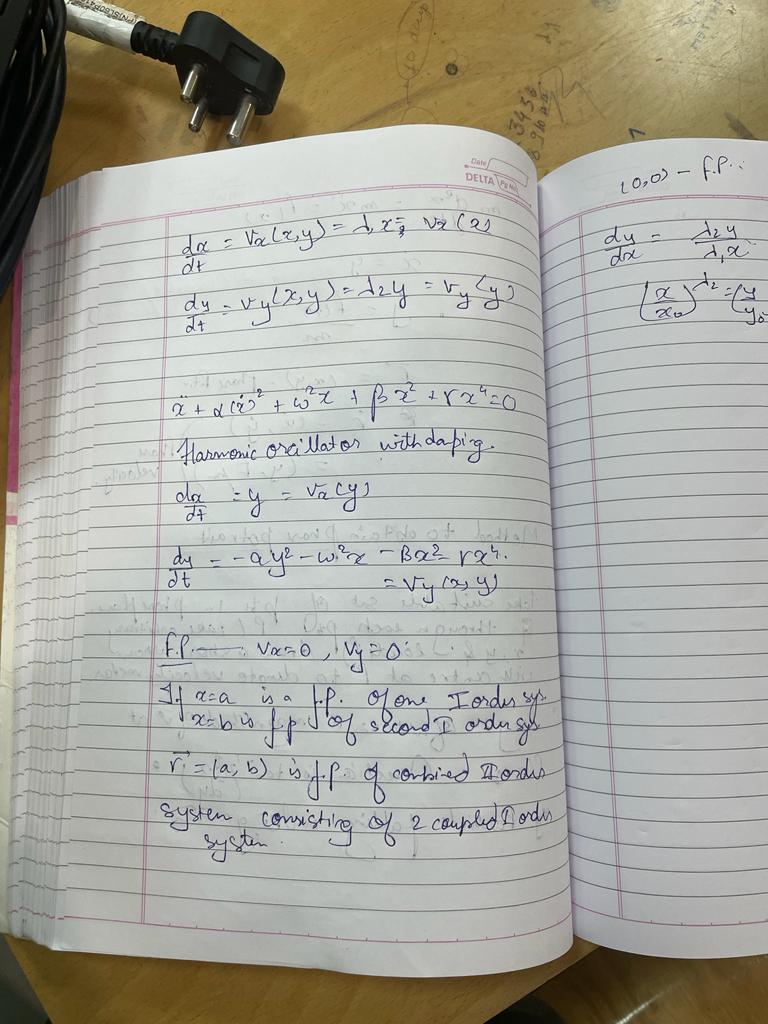 Date
DELTA Pg No.
dx/dt = Vx(x,y) = λ₁x = Vx(x)
dy/dt = Vy(x,y) = λ₂y = Vy(y)
ẍ + α(ẋ)² + ω²x + βx² + γx⁴ = 0
Harmonic oscillator with daping.
dx/dt = y = Vx(y)
dy/dt = -αy² - ω²x - βx² - γx⁴.
= Vy(x,y)
f.P. — Vx=0, Vy=0
If x=a is a f.p. of one I order sys.
x=b is f.p of second I order sys
r⃗ = (a, b) is f.p. of conbined II order
system consisting of 2 coupled I order
system.
(0,0) - f.p.
dy/dx = λ₂y/λ₁x
(x/x₀)^λ₂ = (y/y₀